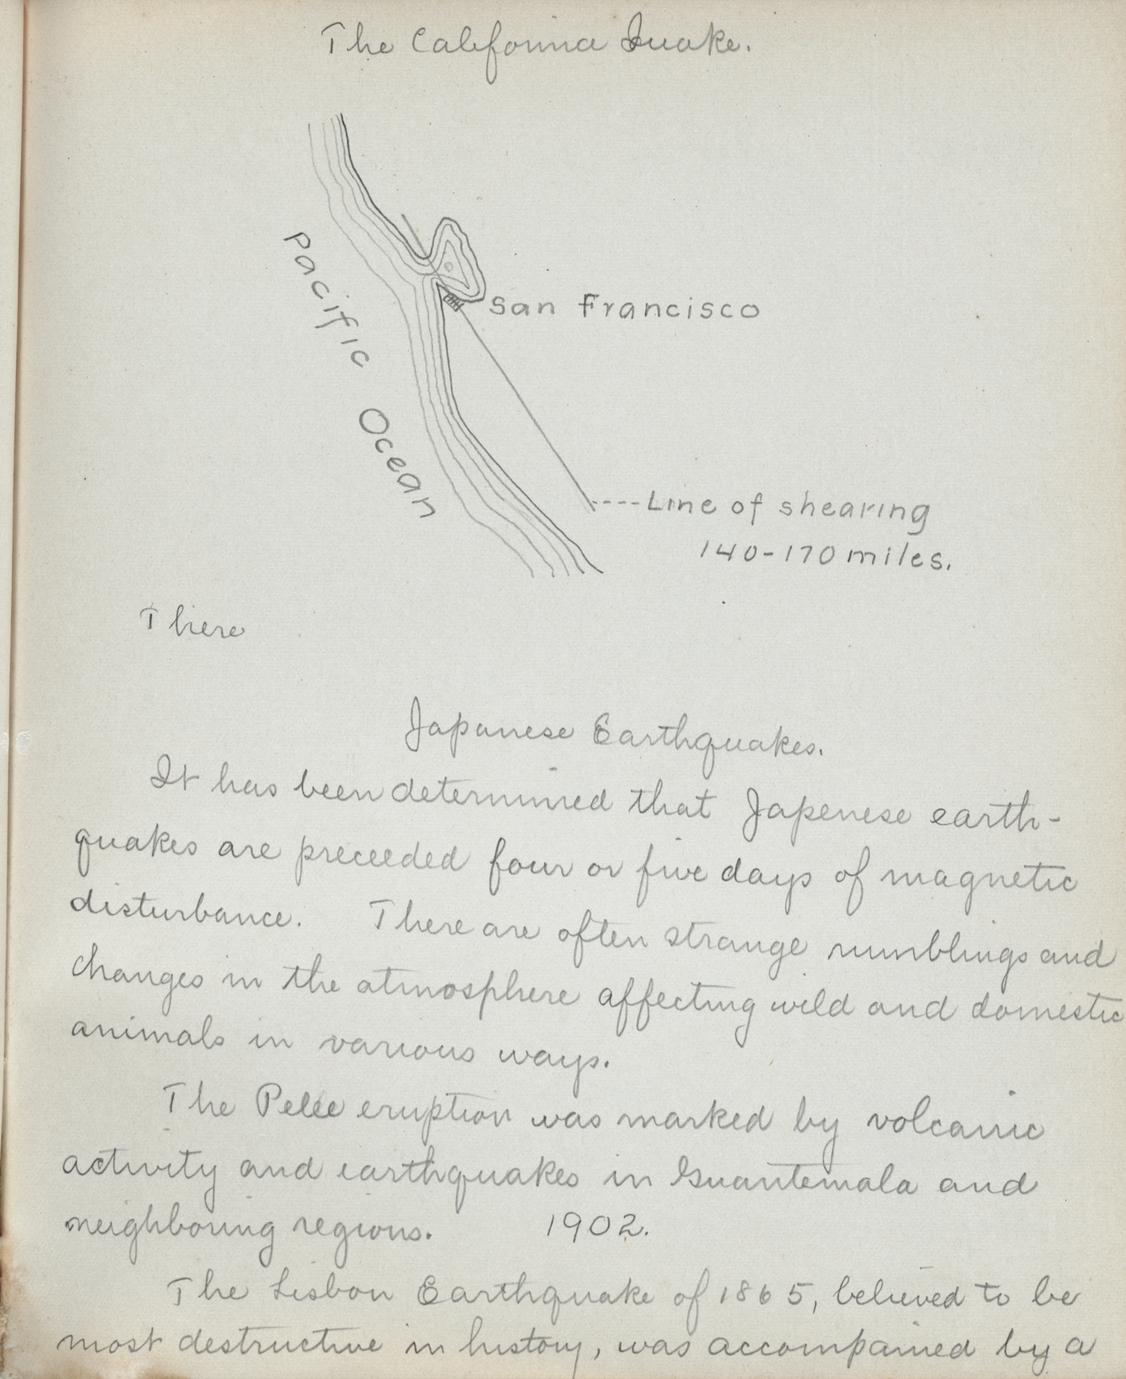 The California Quake.
Pacific Ocean
San Francisco
Line of shearing
140-170 miles.
There
Japanese Earthquakes.
It has been determined that Japenese earth-
quakes are preceeded four or five days of magnetic
disturbance. There are often strange rumblings and
changes in the atmosphere affecting wild and domestic
animals in various ways.
The Pelée eruption was marked by volcanic
activity and earthquakes in Guantemala and
neighboring regions. 1902.
The Lisbon Earthquake of 1865, believed to be
most destructive in history, was accompanied by a